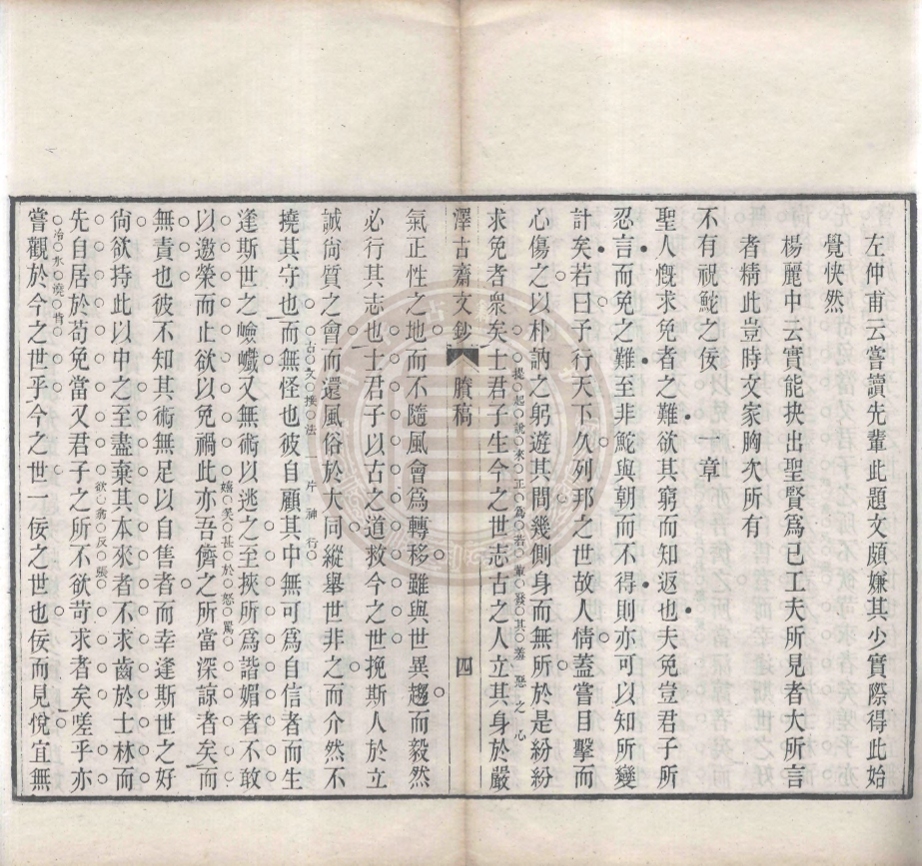 左仲甫云嘗讀先輩此題文頗嫌其少實際得此始
覺快然
楊麗中云實能抉出聖賢爲已工夫所見者大所言
者精此豈時文家胸次所有
不有祝鮀之佞 一章
聖人慨求免者之難欲其窮而知返也夫免豈君子所
忍言而免之難至非鮀與朝而不得則亦可以知所變
計矣若曰予行天下久列邦之世故人情蓋嘗目擊而
心傷之以朴訥之躬遊其間幾側身而無所於是紛紛
求免者衆矣士君子生今之世志古之人立其身於嚴
提起說來正爲若輩發其羞惡之心
澤古齋文鈔 賸稿 四
氣正性之地而不隨風會爲轉移雖與世異趨而毅然
必行其志也士君子以古之道救今之世挽斯人於立
誠尙質之會而還風俗於大同縱舉世非之而介然不
古文接法一片神行
撓其守也而無怪也彼自顧其中無可爲自信者而生
逢斯世之嶮巇又無術以逃之至挾所爲諧媚者不敢
以邀榮而止欲以免禍此亦吾儕之所當深諒者矣而
嬉笑甚於怒罵
無責也彼不知其術無足以自售者而幸逢斯世之好
尙欲持此以中之至盡棄其本來者不求齒於士林而
先自居於苟免當又君子之所不欲苛求者矣嗟乎亦
欲翕反張
嘗觀於今之世乎今之世一佞之世也佞而見悅宜無
冷水澆背